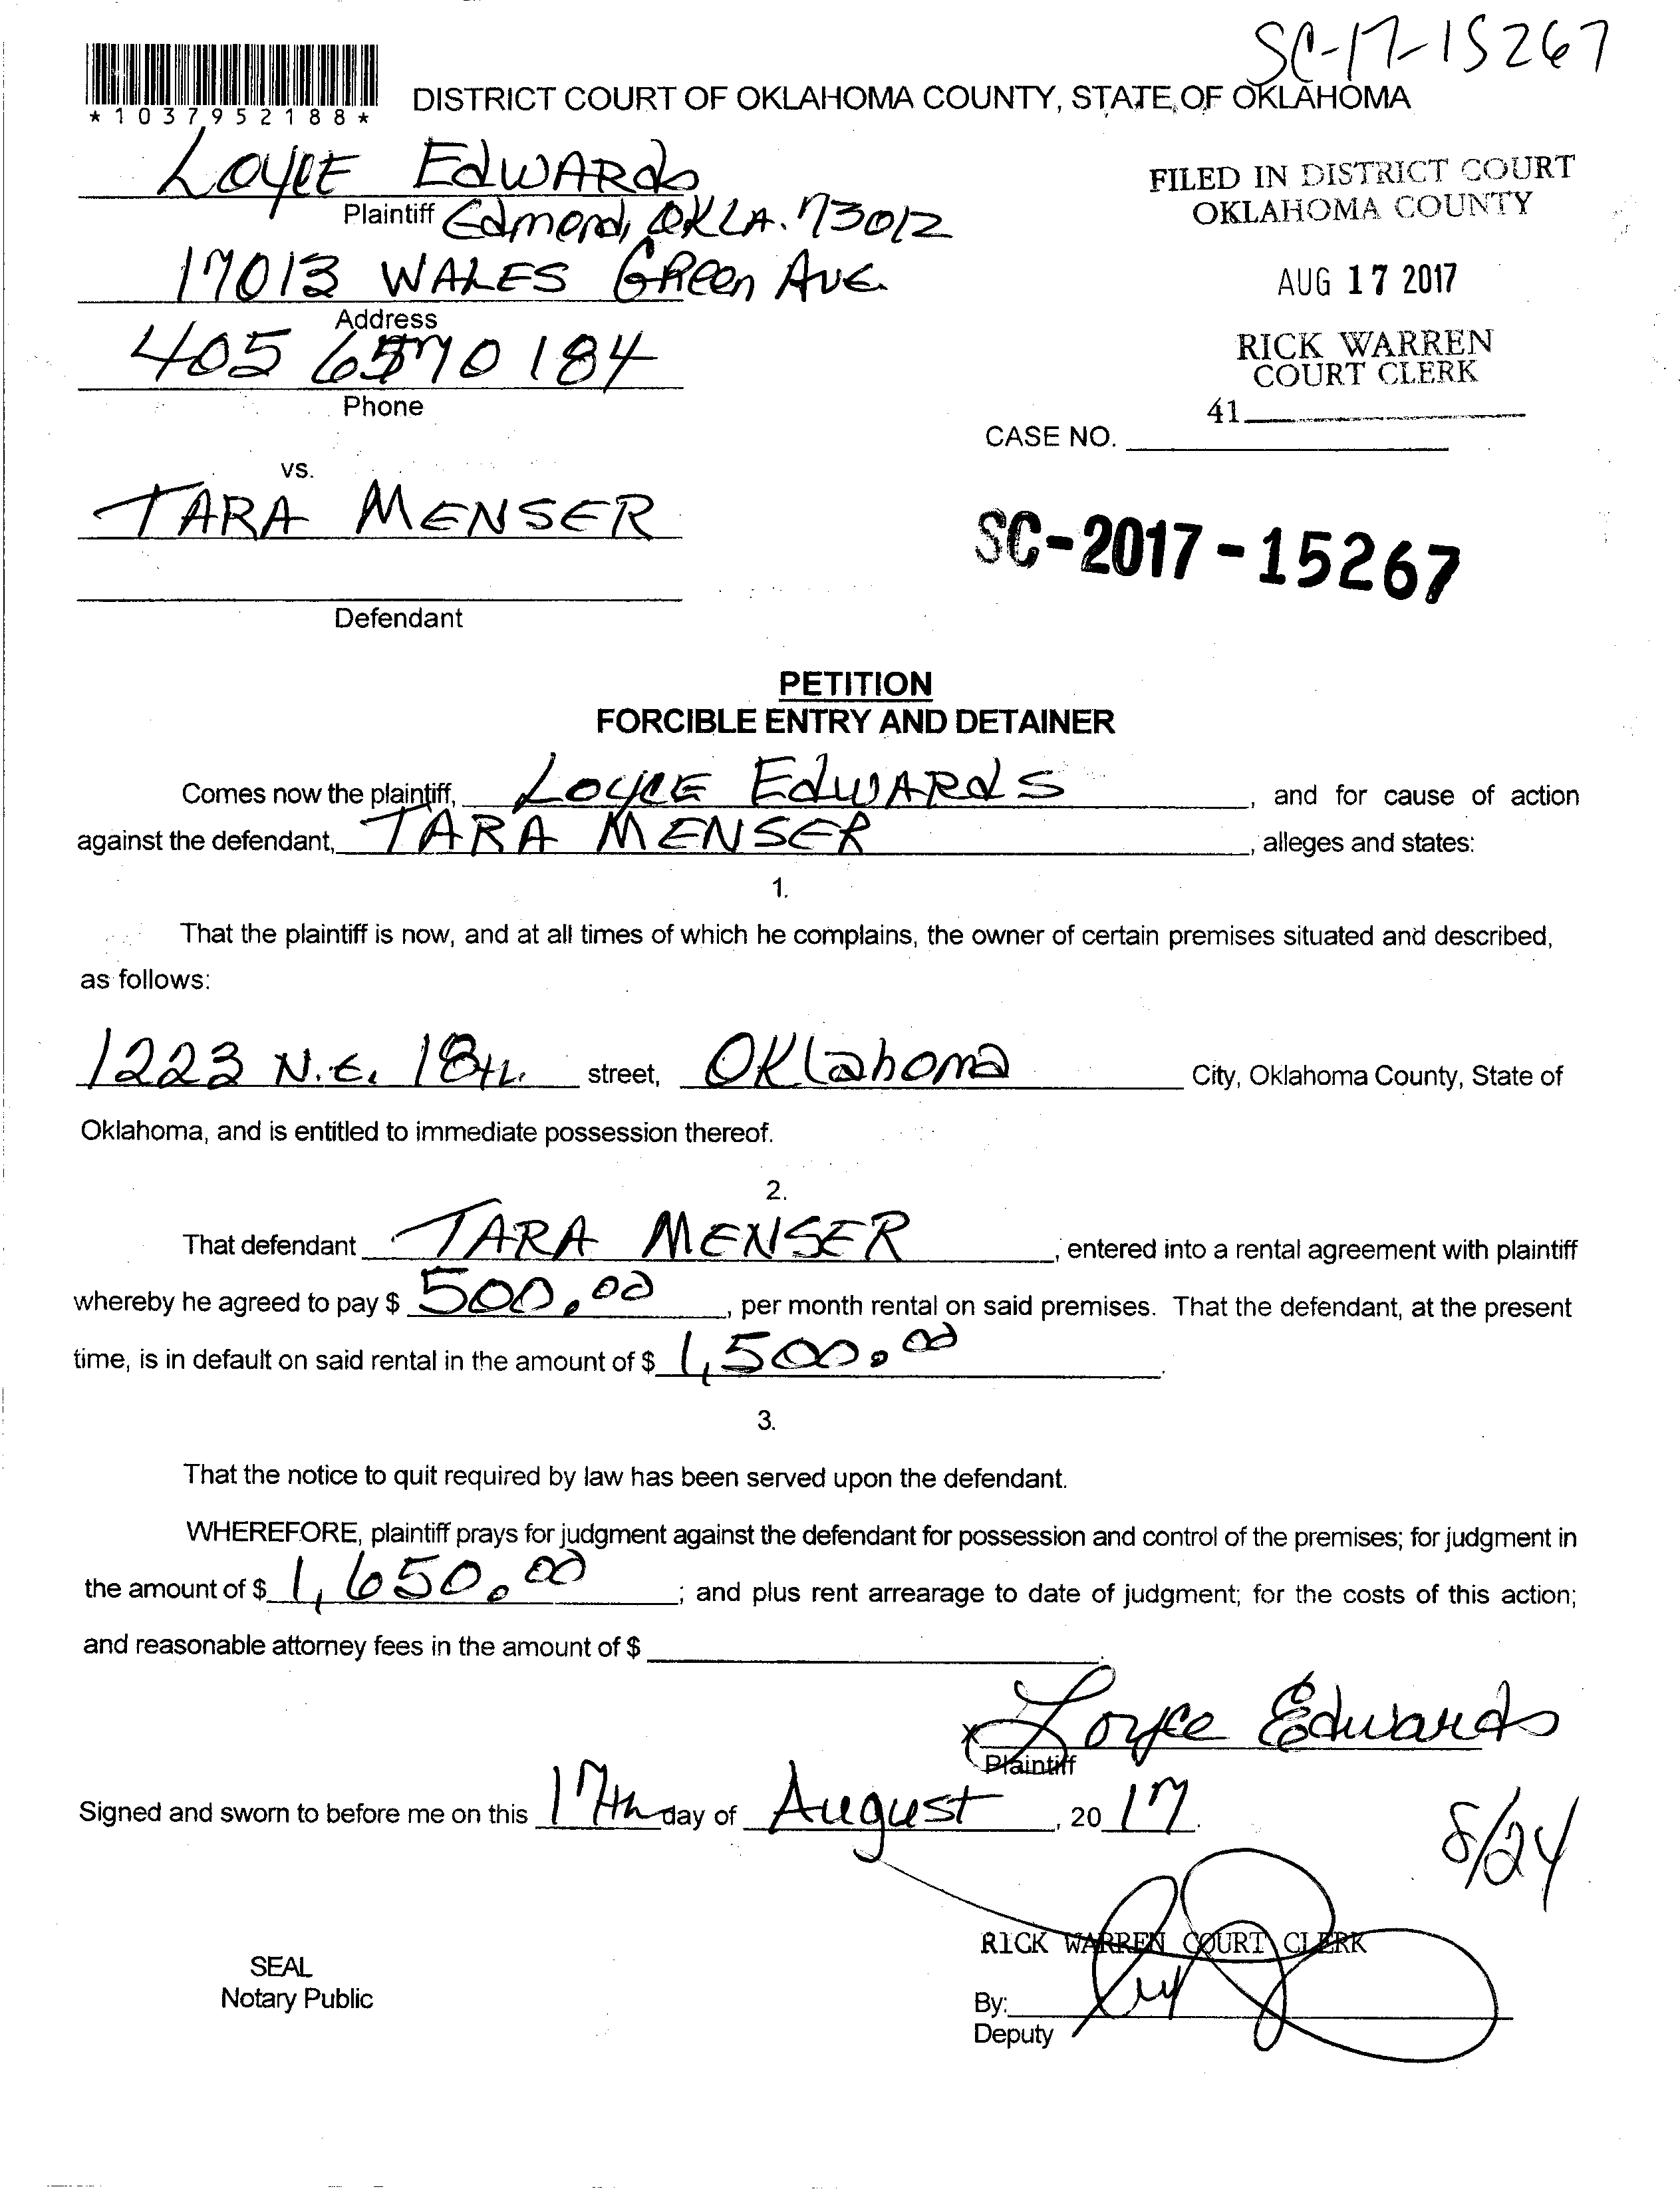 SC-17-15267
*1037952188*
DISTRICT COURT OF OKLAHOMA COUNTY, STATE OF OKLAHOMA
LOYCE EDWARDS
Plaintiff Edmond, OKLA. 73012
17013 WALES GREEN AVE.
Address
405 6570184
Phone
FILED IN DISTRICT COURT
OKLAHOMA COUNTY
AUG 17 2017
RICK WARREN
COURT CLERK
41
CASE NO.
vs.
TARA MENSER
SC-2017-15267
Defendant
PETITION
FORCIBLE ENTRY AND DETAINER
Comes now the plaintiff, LOYCE EDWARDS, and for cause of action
against the defendant, TARA MENSER, alleges and states:
1.
That the plaintiff is now, and at all times of which he complains, the owner of certain premises situated and described,
as follows:
1223 N.E. 18th street, Oklahoma City, Oklahoma County, State of
Oklahoma, and is entitled to immediate possession thereof.
2.
That defendant TARA MENSER, entered into a rental agreement with plaintiff
whereby he agreed to pay $ 500.00, per month rental on said premises. That the defendant, at the present
time, is in default on said rental in the amount of $ 1,500.00.
3.
That the notice to quit required by law has been served upon the defendant.
WHEREFORE, plaintiff prays for judgment against the defendant for possession and control of the premises; for judgment in
the amount of $ 1,650.00; and plus rent arrearage to date of judgment; for the costs of this action;
and reasonable attorney fees in the amount of $
x Loyce Edwards
Plaintiff
Signed and sworn to before me on this 17th day of August, 20 17.
8/24
RICK WARREN COURT CLERK
SEAL
Notary Public
By:
Deputy